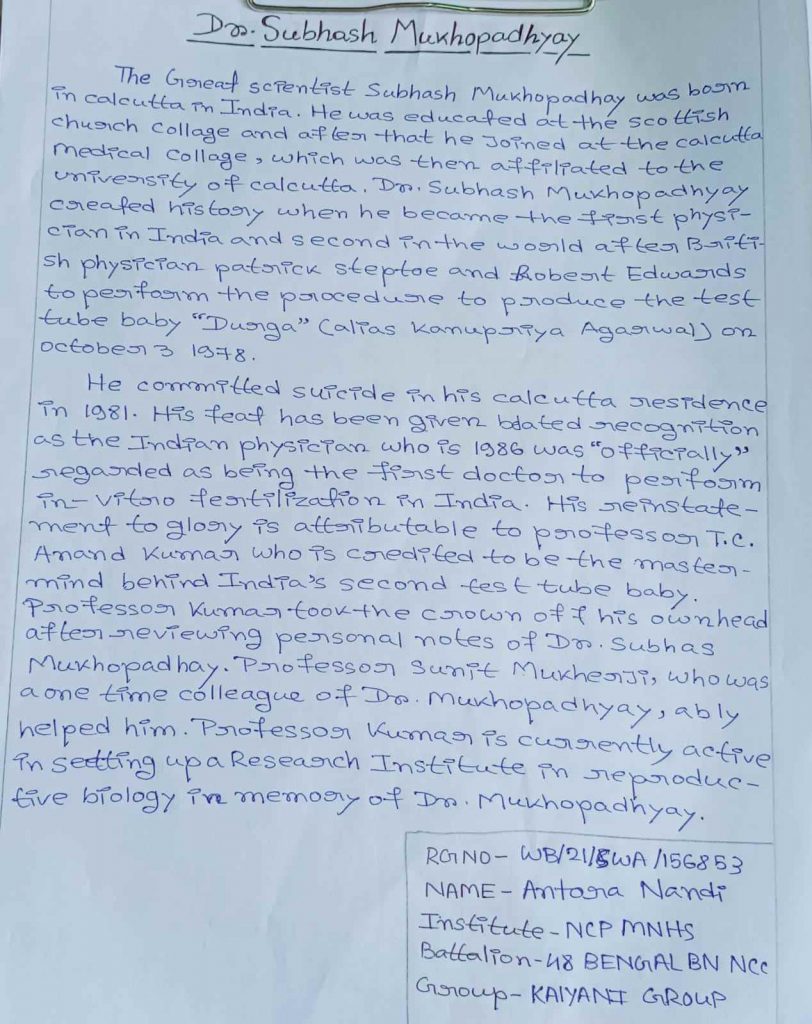 Dr. Subhash Mukhopadhyay
The Great scientist Subhash Mukhopadhay was born
in calcutta in India. He was educated at the scottish
church collage and after that he Joined at the calcutta
Medical collage, which was then affiliated to the
university of calcutta. Dr. Subhash Mukhopadhyay
created history when he became the first physi-
cian in India and second in the world after Briti-
sh physician patrick steptoe and Robert Edwards
to perform the procedure to produce the test
tube baby "Durga" (alias Kanupriya Agarwal) on
october 3 1978.
He committed suicide in his calcutta residence
in 1981. His feat has been given blated recognition
as the Indian physician who is 1986 was "officially"
regarded as being the first doctor to perform
in-vitro fertilization in India. His reinstate-
ment to glory is attributable to professor T.C.
Anand Kumar who is credited to be the master-
mind behind India's second test tube baby.
Professor Kumar took the crown off his own head
after reviewing personal notes of Dr. Subhas
Mukhopadhay. Professor Sunit Mukherji, who was
a one time colleague of Dr. Mukhopadhyay, ably
helped him. Professor Kumar is currently active
in setting up a Research Institute in reproduc-
tive biology in memory of Dr. Mukhopadhyay.
RGNO- WB/21/SWA/156853
NAME- Antara Nandi
Institute- NCP MNHS
Battalion-48 BENGAL BN NCC
Group- KAIYANI GROUP